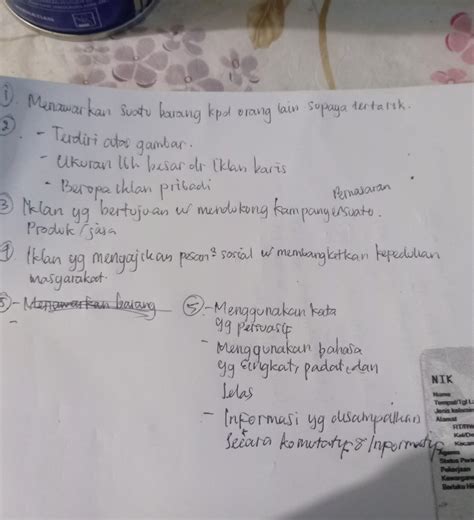 ① Menawarkan suatu barang kpd orang lain supaya tertarik.
② - Terdiri atas gambar.
- Ukuran lbh besar dr iklan baris
- Beropa iklan pribadi
Pemasaran
③ Iklan yg bertujuan u/ mendukong kampanye suatu
Produk / jasa
④ Iklan yg mengajikan pesan² sosial u/ membangkitkan kepedulian
masyarakat.
⑤ - Menawarkan barang
-
⑤ - Menggunakan kata
yg persuasif
- Menggunakan bahasa
yg singkat, padat, dan
Jelas
- Informasi yg disampaikan
Secara komutatif & Informatif
NIK
Nama
Tempat/Tgl La
Jenis kelamin
Alamat
RT/RW
Kel/De
Kecam
Agama
Status Perk
Pekerjaan
Kewargane
Berlaku Hi